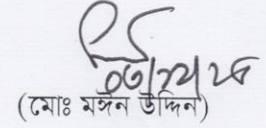 (মোঃ মঈন উদ্দিন)